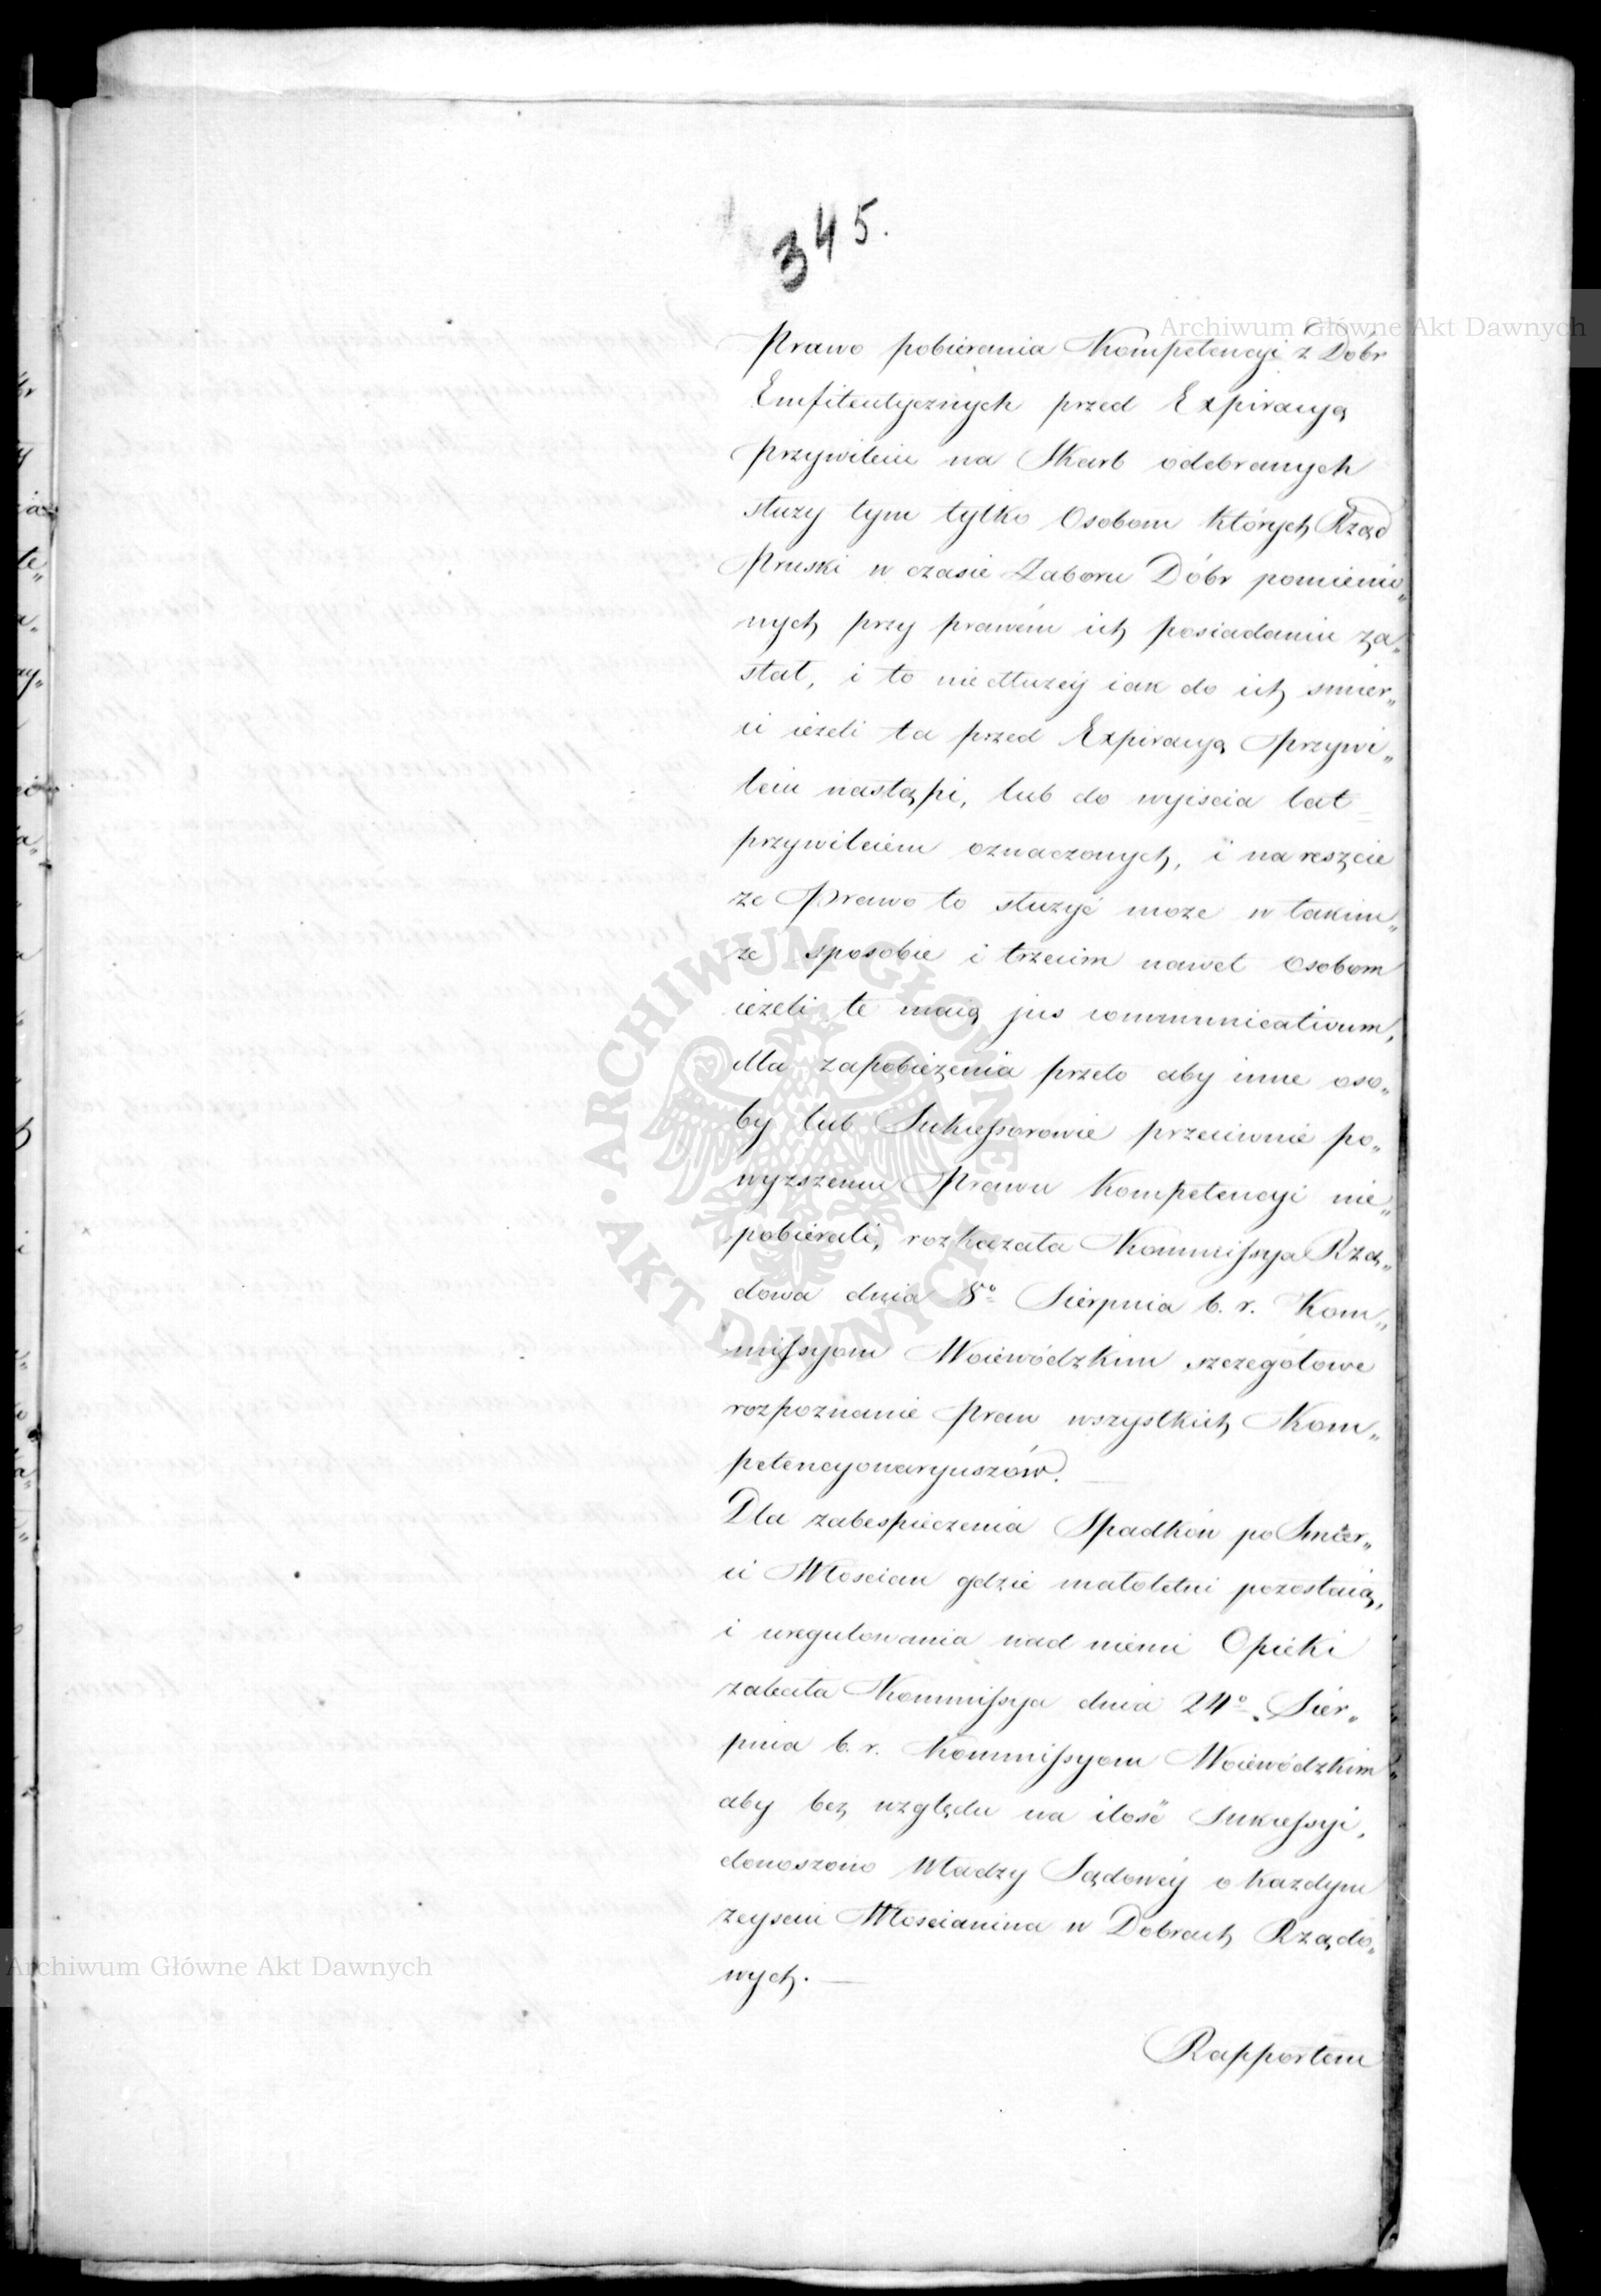 345.
Archiwum Główne Akt Dawnych
Prawo pobierania Kompetencyi z Dóbr
Emfiteutycznych przed Expiracyą
przywileiu na Skarb odebranych
służy tym tylko Osobom których Rząd
Pruski w czasie Zaboru Dóbr pomienio„
nych przy prawém ich posiadaniu za„
stał, i to niedłużey iak do ich smier„
ci ieżeli ta przed Expiracyą przywi„
leiu nastąpi, lub do wyiscia lat
przywileiem oznaczonych, i nareszcie
że Prawo to służyć może w takim„
że sposobie i trzecim nawet Osobom
ieżeli te maią jus communicativum,
dla zapobieżenia przeto aby inne oso„
by lub Sukcessorowie przeciwnie po„
wyższemu Prawu Kompetencyi nie„
pobierali, rozkazała Kommissya Rzą„
dowa dnia 8º Sierpnia b. r. Kom„
missyom Woiewódzkim szczegółowe
rozpoznanie Praw wszystkich Kom„
petencyonaryuszów. —
Dla zabespieczenia Spadków po Smier„
ci Włoscian gdzie małoletni pozostaią,
i uregulowania nad niemi Opieki
zaleciła Kommissya dnia 24º Sier„
pnia b. r. Kommissyom Woiewódzkim
aby bez względu na ilość Sukcessyi,
donoszono Władzy Sądowéy o każdym
zeysciu Włoscianina w Dobrach Rządo„
wych. —
Rapportem
ARCHIWUM GŁÓWNE • AKT DAWNYCH •
Archiwum Główne Akt Dawnych